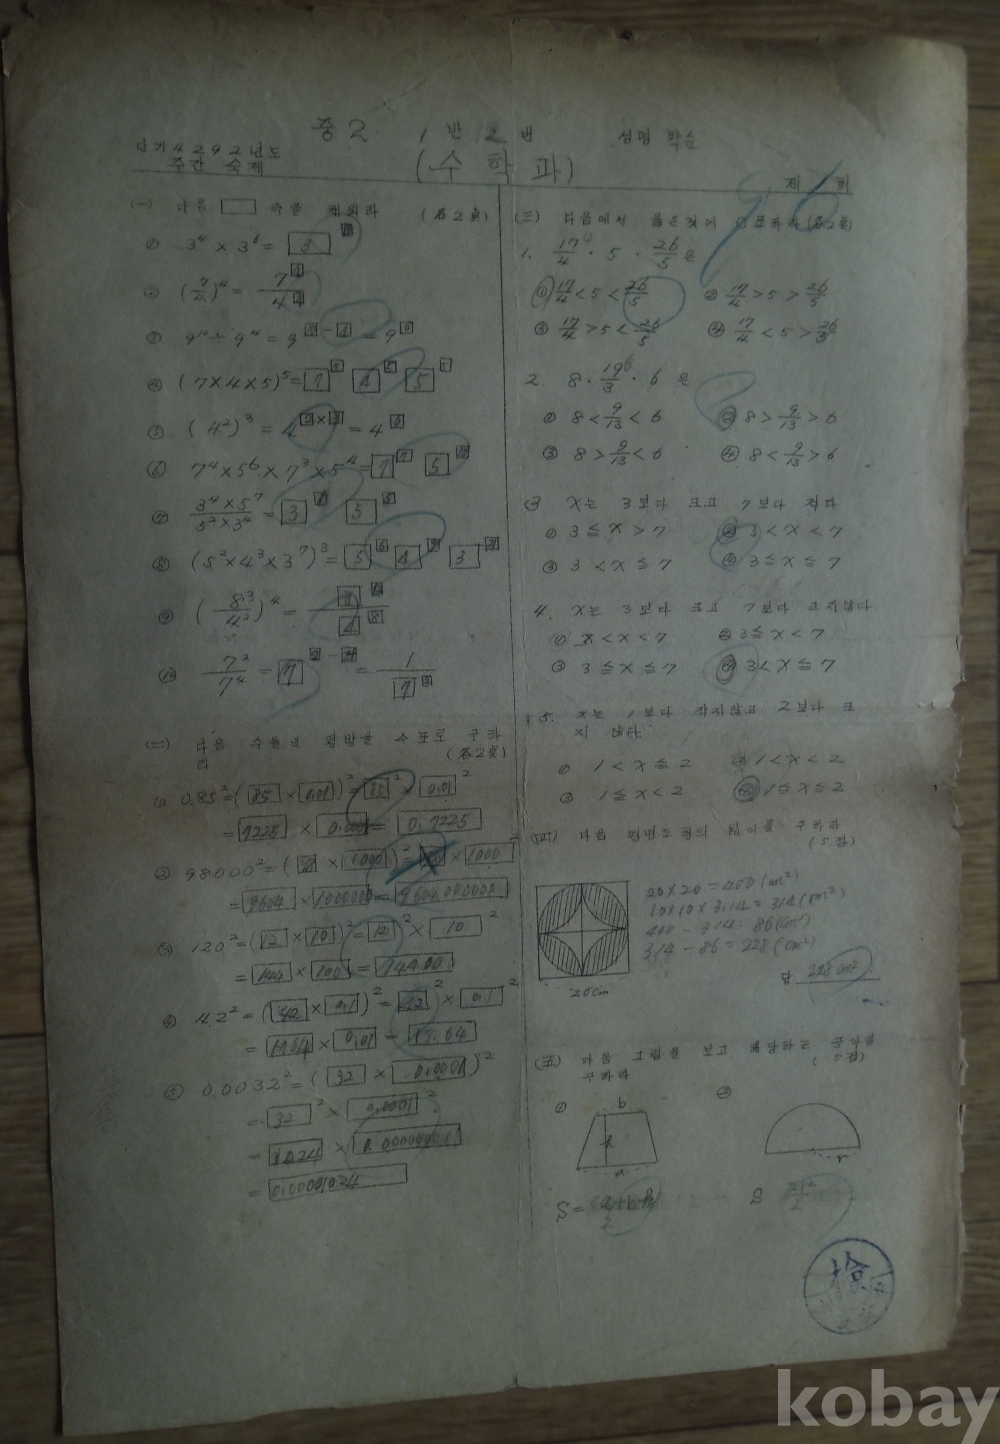 중2 1반 2번 성명 학순
단기4292년도
주간 숙제
(수학과)
제 회
(一) 다음 □ 속을 채워라 (各2点)
① 3⁴ × 3⁶ = 3
② (7/4)⁴ = 7/4
④ (7×4×5)⁵ = 7 4 5
⑤ (4²)³ = 4 = 4
⑥ 7⁴×5⁶×7³×5⁴ = 7 5
⑦ 3⁴×5⁷/5²×3⁴ = 3 5
⑧ (5²×4³×3⁷)³ = 5 4 3
⑨ (8³/4²)⁴ = 8/4
⑩ 7²/7⁴ = 7 = 1/7
(二) 다음 수들의 평방을 수표로 구하
라 (各2点)
① 0.85² = (85 × 0.01)² = 85² × 0.01²
= 7225 × 0.0001 = 0.7225
② 98000² = ( × 1000)² = × 1000²
= 9604 × 1000000 = 9604000000
③ 120² = (12 × 10)² = 12² × 10²
= 144 × 100 = 14400
④ 4.2² = (42 × 0.1)² = 42² × 0.1²
= 1764 × 0.01 = 17.64
⑤ 0.0032² = (32 × 0.0001)²
= 32² × 0.0001²
= 1024 × 0.00000001
= 0.00001024
(三) 다음에서 옳은것에 ○표하라 (各2点)
1. 17/4 · 5 · 26/5 은
① 17/4 < 5 < 26/5 ② 17/4 > 5 > 26/5
③ 17/4 > 5 < 26/5 ④ 17/4 < 5 > 26/5
2. 8 · 19/3 · 6 은
① 8 < 9/13 < 6 ② 8 > 9/13 > 6
③ 8 > 9/13 < 6 ④ 8 < 9/13 > 6
3. x는 3보다 크고 7보다 작다
① 3 ≦ x > 7 ② 3 < x < 7
③ 3 < x ≦ 7 ④ 3 ≦ x ≦ 7
4. x는 3보다 크고 7보다 크지않다
① x < x < 7 ② 3 ≦ x < 7
③ 3 ≦ x ≦ 7 ④ 3 < x ≦ 7
5. x는 1보다 작지않고 2보다 크
지 않다
① 1 < x ≦ 2 ② 1 < x < 2
③ 1 ≦ x < 2 ④ 1 ≦ x ≦ 2
(四) 다음 평면도형의 넓이를 구하라
(5점)
20×20 = 400 (cm²)
10×10×3.14 = 314 (cm²)
400 - 314 = 86 (cm²)
314 - 86 = 228 (cm²)
답 228 cm²
20cm
(五) 다음 그림을 보고 해당하는 공식을
구하라 (5점)
① ②
b
h
a
r
S = (a+b)h/2 S
檢
kobay